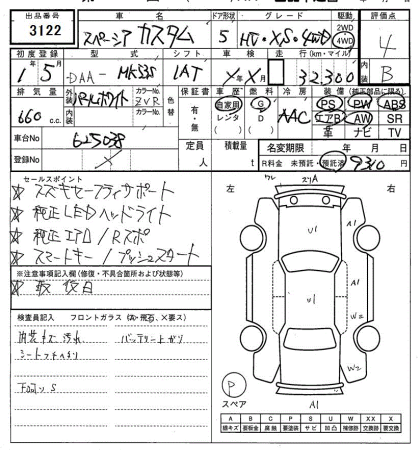 出品番号 車名 ドア形状 グレード 駆動 評価点
3122 スペーシア カスタム 5 HV・XS・4WD 2WD 4WD 4
初度登録 型式 シフト 車検 走行(km・マイル) B
1年 5月 -DAA-MK53S IAT X年X月 32,300
排気量 外装 カラーNo. 色替 保証書 車歴 燃料 冷房 装備(純正部品に限る)
660 c.c. パールホワイト ZVR 有・無 自家用 レンタ G D AAC PS PW ABS
内装 カラーNo. エアB AW SR
車台No 625038 定員 人 積載量 t 革 ナビ TV
登録No 名変期限 年 月 日
R料金 未預託・預託済 9310 円
セールスポイント
スズキセーフティサポート
純正LEDヘッドライト
純正エアロ/Rスポ
スマートキー/プッシュスタート
※注意事項記入欄(修復・不具合箇所および状態等)
取 後日
検査員記入 フロントガラス(カケ・飛石、X要ス)
内装キズ汚れ バッテリー上がり
シートコゲ
下回りS
左 右
A1
U1
A1
U1
W2
W2
P
スペア A1
A B C P S U W XX X
線キズ 要板金 腐蝕 要塗装 サビ 凹凸 補修跡 交換跡 要交換